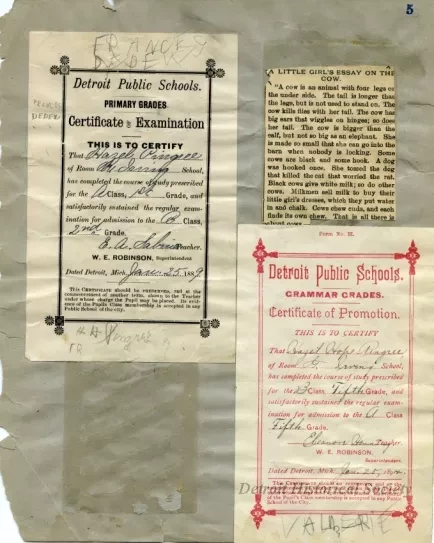 5
FRANCES
Detroit Public Schools.
PRIMARY GRADES
Certificate of Examination
THIS IS TO CERTIFY
That Hazel Pingree
of Room B, Irving School,
has completed the course of study prescribed
for the A Class, 1st Grade, and
satisfactorily sustained the regular exam-
ination for admission to the B Class,
2nd Grade.
E. A. Teacher.
W. E. ROBINSON, Superintendent
Dated Detroit, Mich. Jan. 25, 1889
This Certificate should be PRESERVED, and at the
commencement of another term, shown to the Teacher
under whose charge the Pupil may be placed. Its evid-
ence of the Pupils Class membership is accepted in any
Public School of the city.
A LITTLE GIRL'S ESSAY ON THE
COW.
"A cow is an animal with four legs on
the under side. The tail is longer than
the legs, but is not used to stand on. The
cow kills flies with her tail. The cow has
big ears that wiggles on hinges; so does
her tail. The cow is bigger than the
calf, but not so big as an elephant. She
is made so small that she can go into the
barn when nobody is looking. Some
cows are black and some hook. A dog
was hooked once. She tossed the dog
that killed the cat that worried the rat.
Black cows give white milk; so do other
cows. Milkmen sell milk to buy their
little girl's dresses, which they put water
in and chalk. Cows chew cuds, and each
finds its own chew. That is all there is
about cows."
Form No. III.
Detroit Public Schools.
GRAMMAR GRADES.
Certificate of Promotion.
THIS IS TO CERTIFY
That Hazel Hope Pingree
of Room Irving School,
has completed the course of study prescribed
for the B Class, Fifth Grade, and
satisfactorily sustained the regular exam-
ination for admission to the A Class
Fifth Grade.
Eleanor Teacher.
W. E. ROBINSON,
Superintendent.
Dated Detroit, Mich. Jan. 25, 
This Certificate should be PRESERVED, and at the
commencement of another term, shown to the Teacher
under whose charge the Pupil may be placed. Its evidence
of the Pupil's Class membership is accepted in any Public
School of the City.
Detroit Historical Society